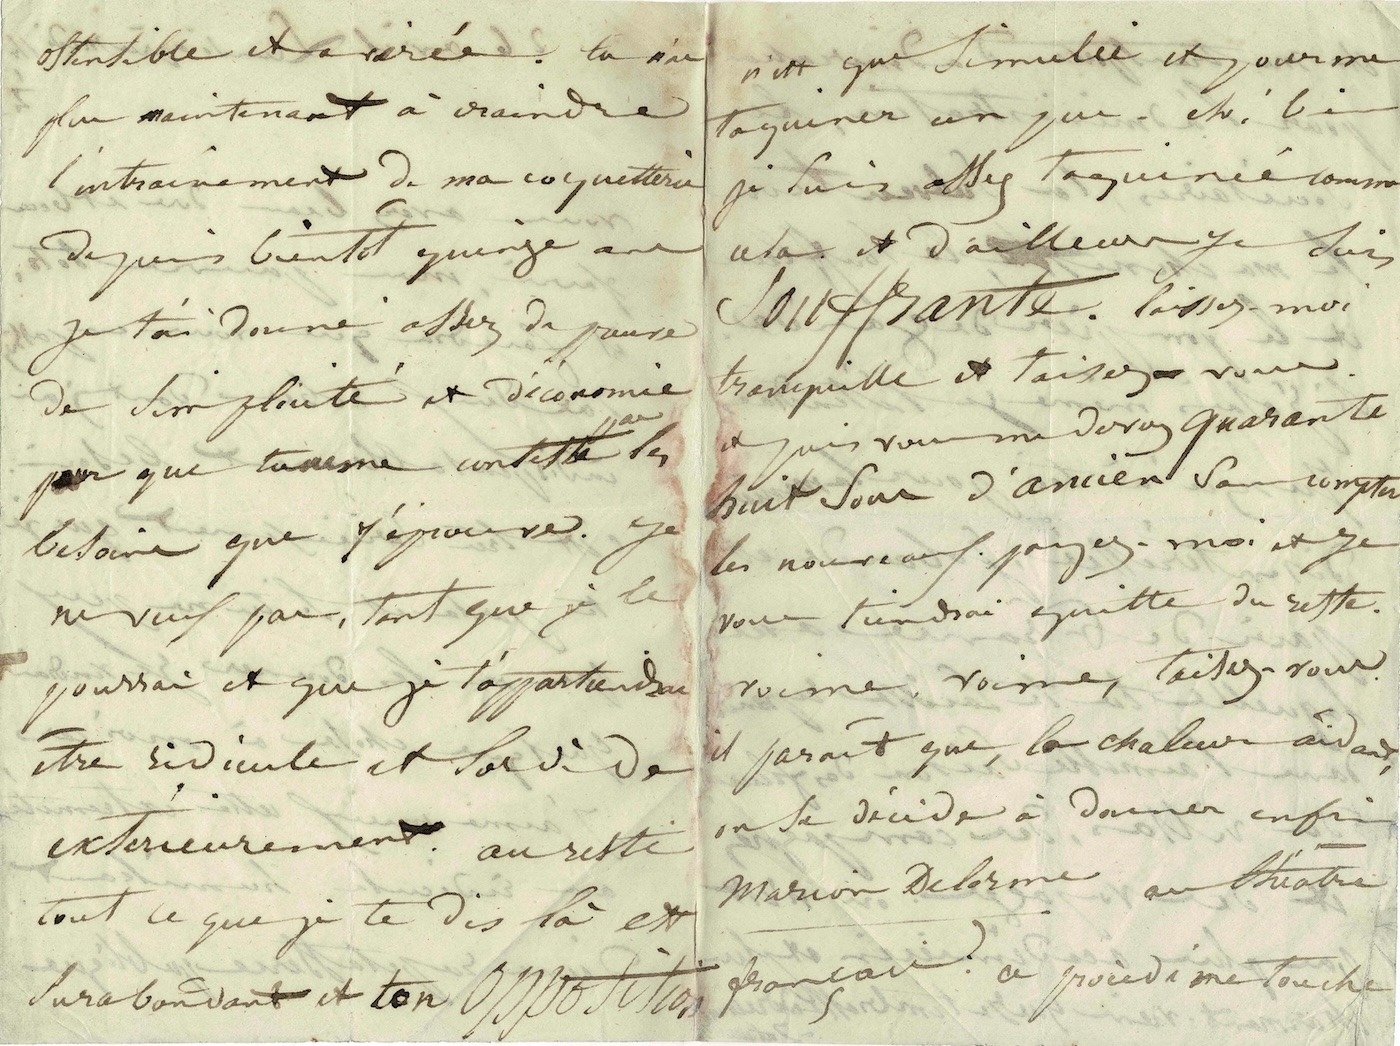 ostensible et avérée. tu n'as
plus maintenant à craindre
l'entraînement de ma coquetterie
depuis bientôt quinze ans
je t'ai donné assez de preuves
de simplicité et d'économie
pour que tu ne me contestes pas les
besoins que j'éprouve. Je
ne veux pas, tant que je le
pourrai et que je t'appartiendrai
être ridicule et sordide
extérieurement. au reste
tout ce que je te dis là est
surabondant et ton opposition
n'est que simulée et pour me
taquiner un peu. eh! bien
je suis assez taquinée comme
cela. et d'ailleurs je suis
Souffrante. laissez-moi
tranquille et taisez-vous.
et puis vous me devez quarante
huit sous d'ancien sans compter
les nouveaux. payez-moi et je
vous tiendrai quitte du reste.
voime, voime, taisez-vous.
il paraît que, la chaleur aidant,
on se décide à donner enfin
Marion Delorme au théâtre
français? ce procédé me touche